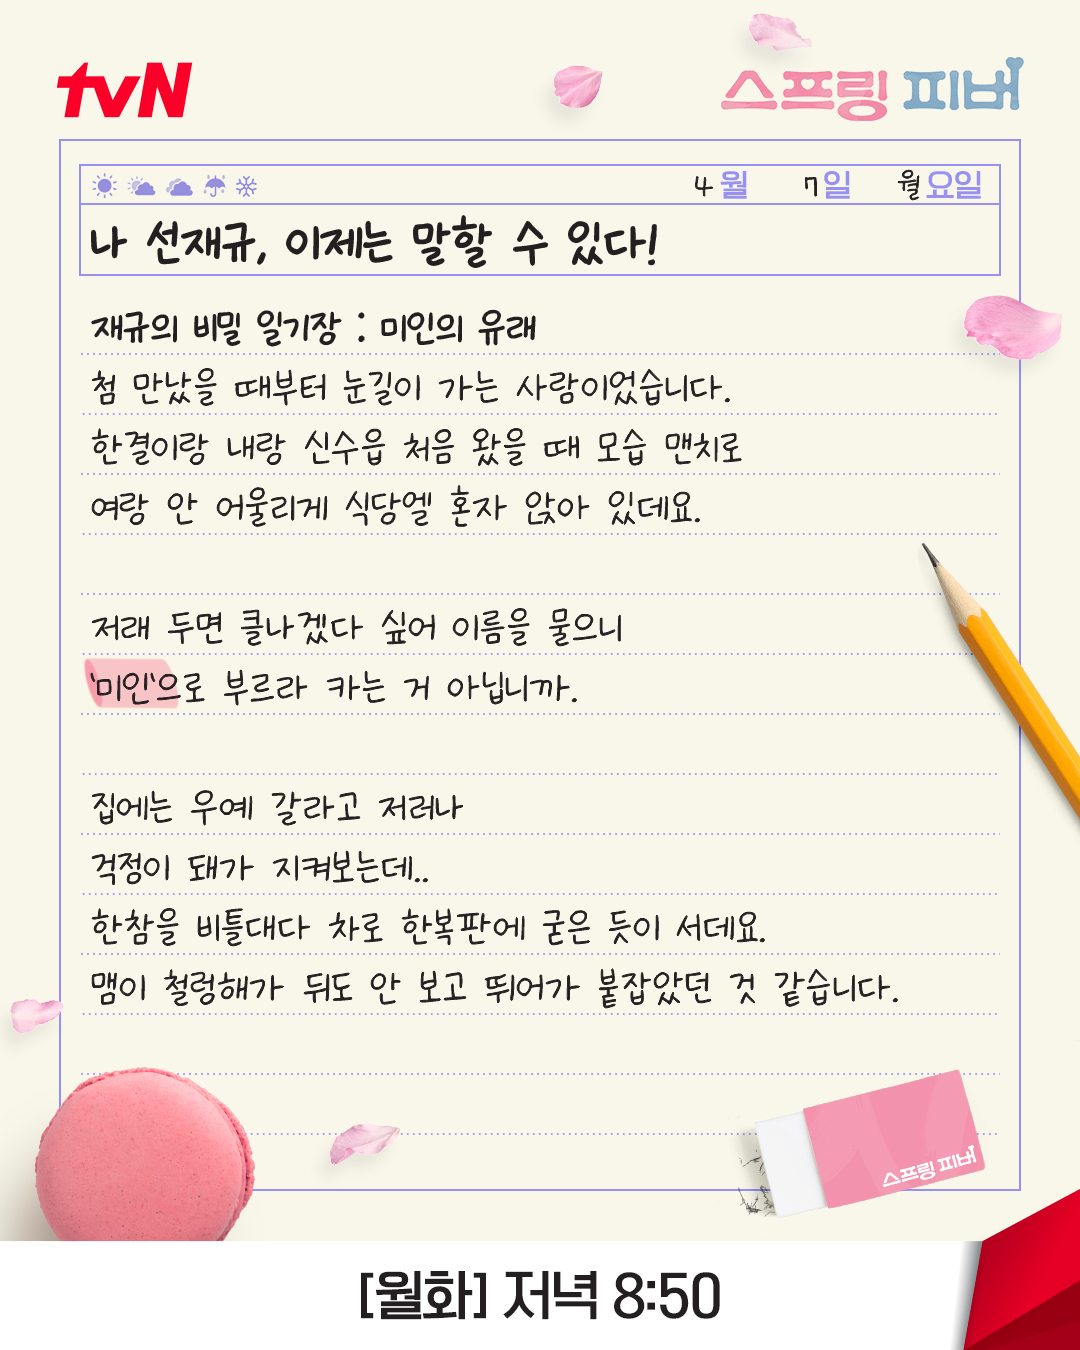 tvN
스프링 피버
4월 7일 월요일
나 선재규, 이제는 말할 수 있다!
재규의 비밀 일기장 : 미인의 유래
첨 만났을 때부터 눈길이 가는 사람이었습니다.
한결이랑 내랑 신수읍 처음 왔을 때 모습 맨치로
여랑 안 어울리게 식당엘 혼자 앉아 있데요.
저래 두면 클나겠다 싶어 이름을 물으니
'미인'으로 부르라 카는 거 아닙니까.
집에는 우예 갈라고 저러나
걱정이 돼가 지켜보는데..
한참을 비틀대다 차로 한복판에 굳은 듯이 서데요.
맴이 철렁해가 뒤도 안 보고 뛰어가 붙잡았던 것 같습니다.
스프링 피버
[월화] 저녁 8:50